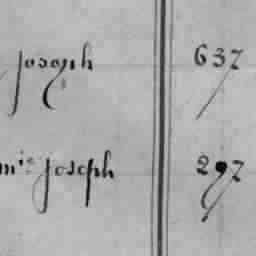 Joseph 637
mie Joseph 297